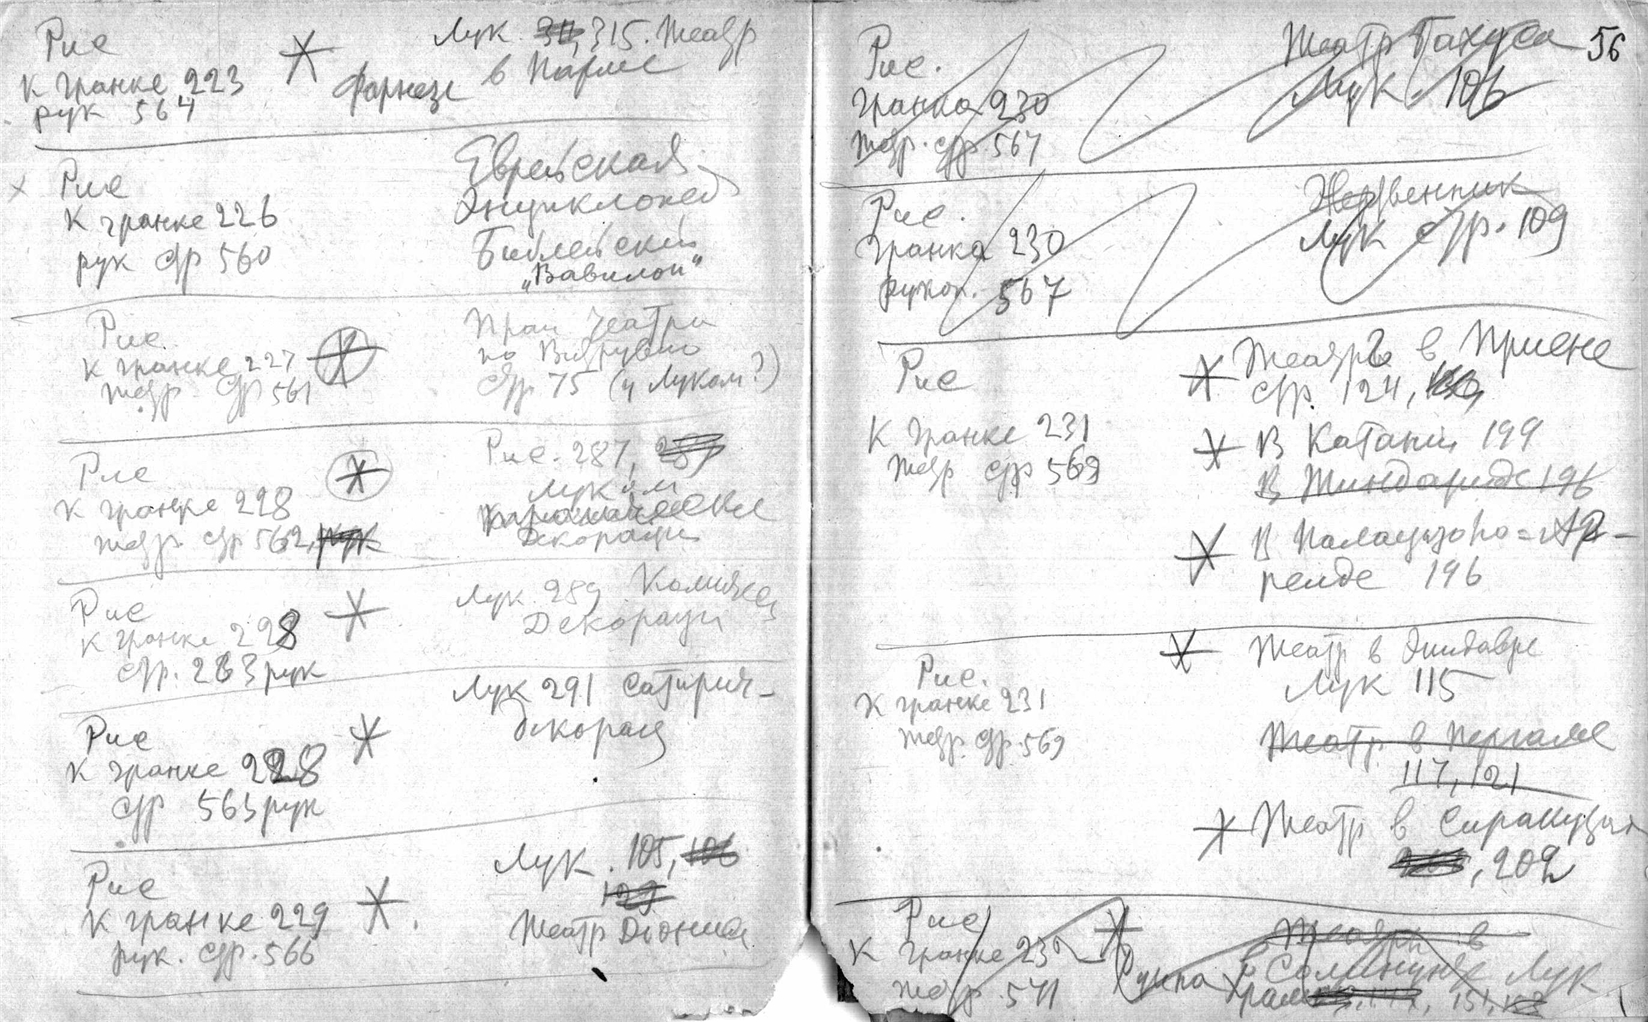 Рис
К гранке 223
рук 564
Лук. 315. Театр
Фарнезе в Парме
Рис
К гранке 226
рук стр 560
Еврейская
Энциклопед
Библейский
„Вавилон"
Рис
К гранке 227
тетр. стр 561
План театра
по Витрувию
стр. 75 (у Луком?)
Рис
К гранке 228
тетр. стр 562,
Рис. 287,
Луком
Декорации
Рис
К гранке 228
стр. 263 рук
Лук 289 Комическ
Декораци
Рис
К гранке 228
стр 563 рук
Лук 291 Сатирич-
декорац
Рис
К гранке 229
рук. стр. 566
Лук. 105, 106
129
Театр Диониса
56
Рис.
гранка 230
тетр. стр 567
Театр Бахуса
Лук. 106
Рис.
гранка 230
рукоп. 567
Жертвенник
Лук стр. 109
Рис
К гранке 231
тетр стр 569
Театр в Приене
стр. 124,
В Катании 199
В Тиндариде 196
В Палаццоло-Ак-
реиде 196
Рис.
К гранке 231
тетр. стр. 569
Театр в Эпидавре
Лук 115
Театр в Пергаме
117, 121
Театр в Сиракузах
, 202
Рис
К гранке 232
тетр. 571
Театр в
Лук
151,